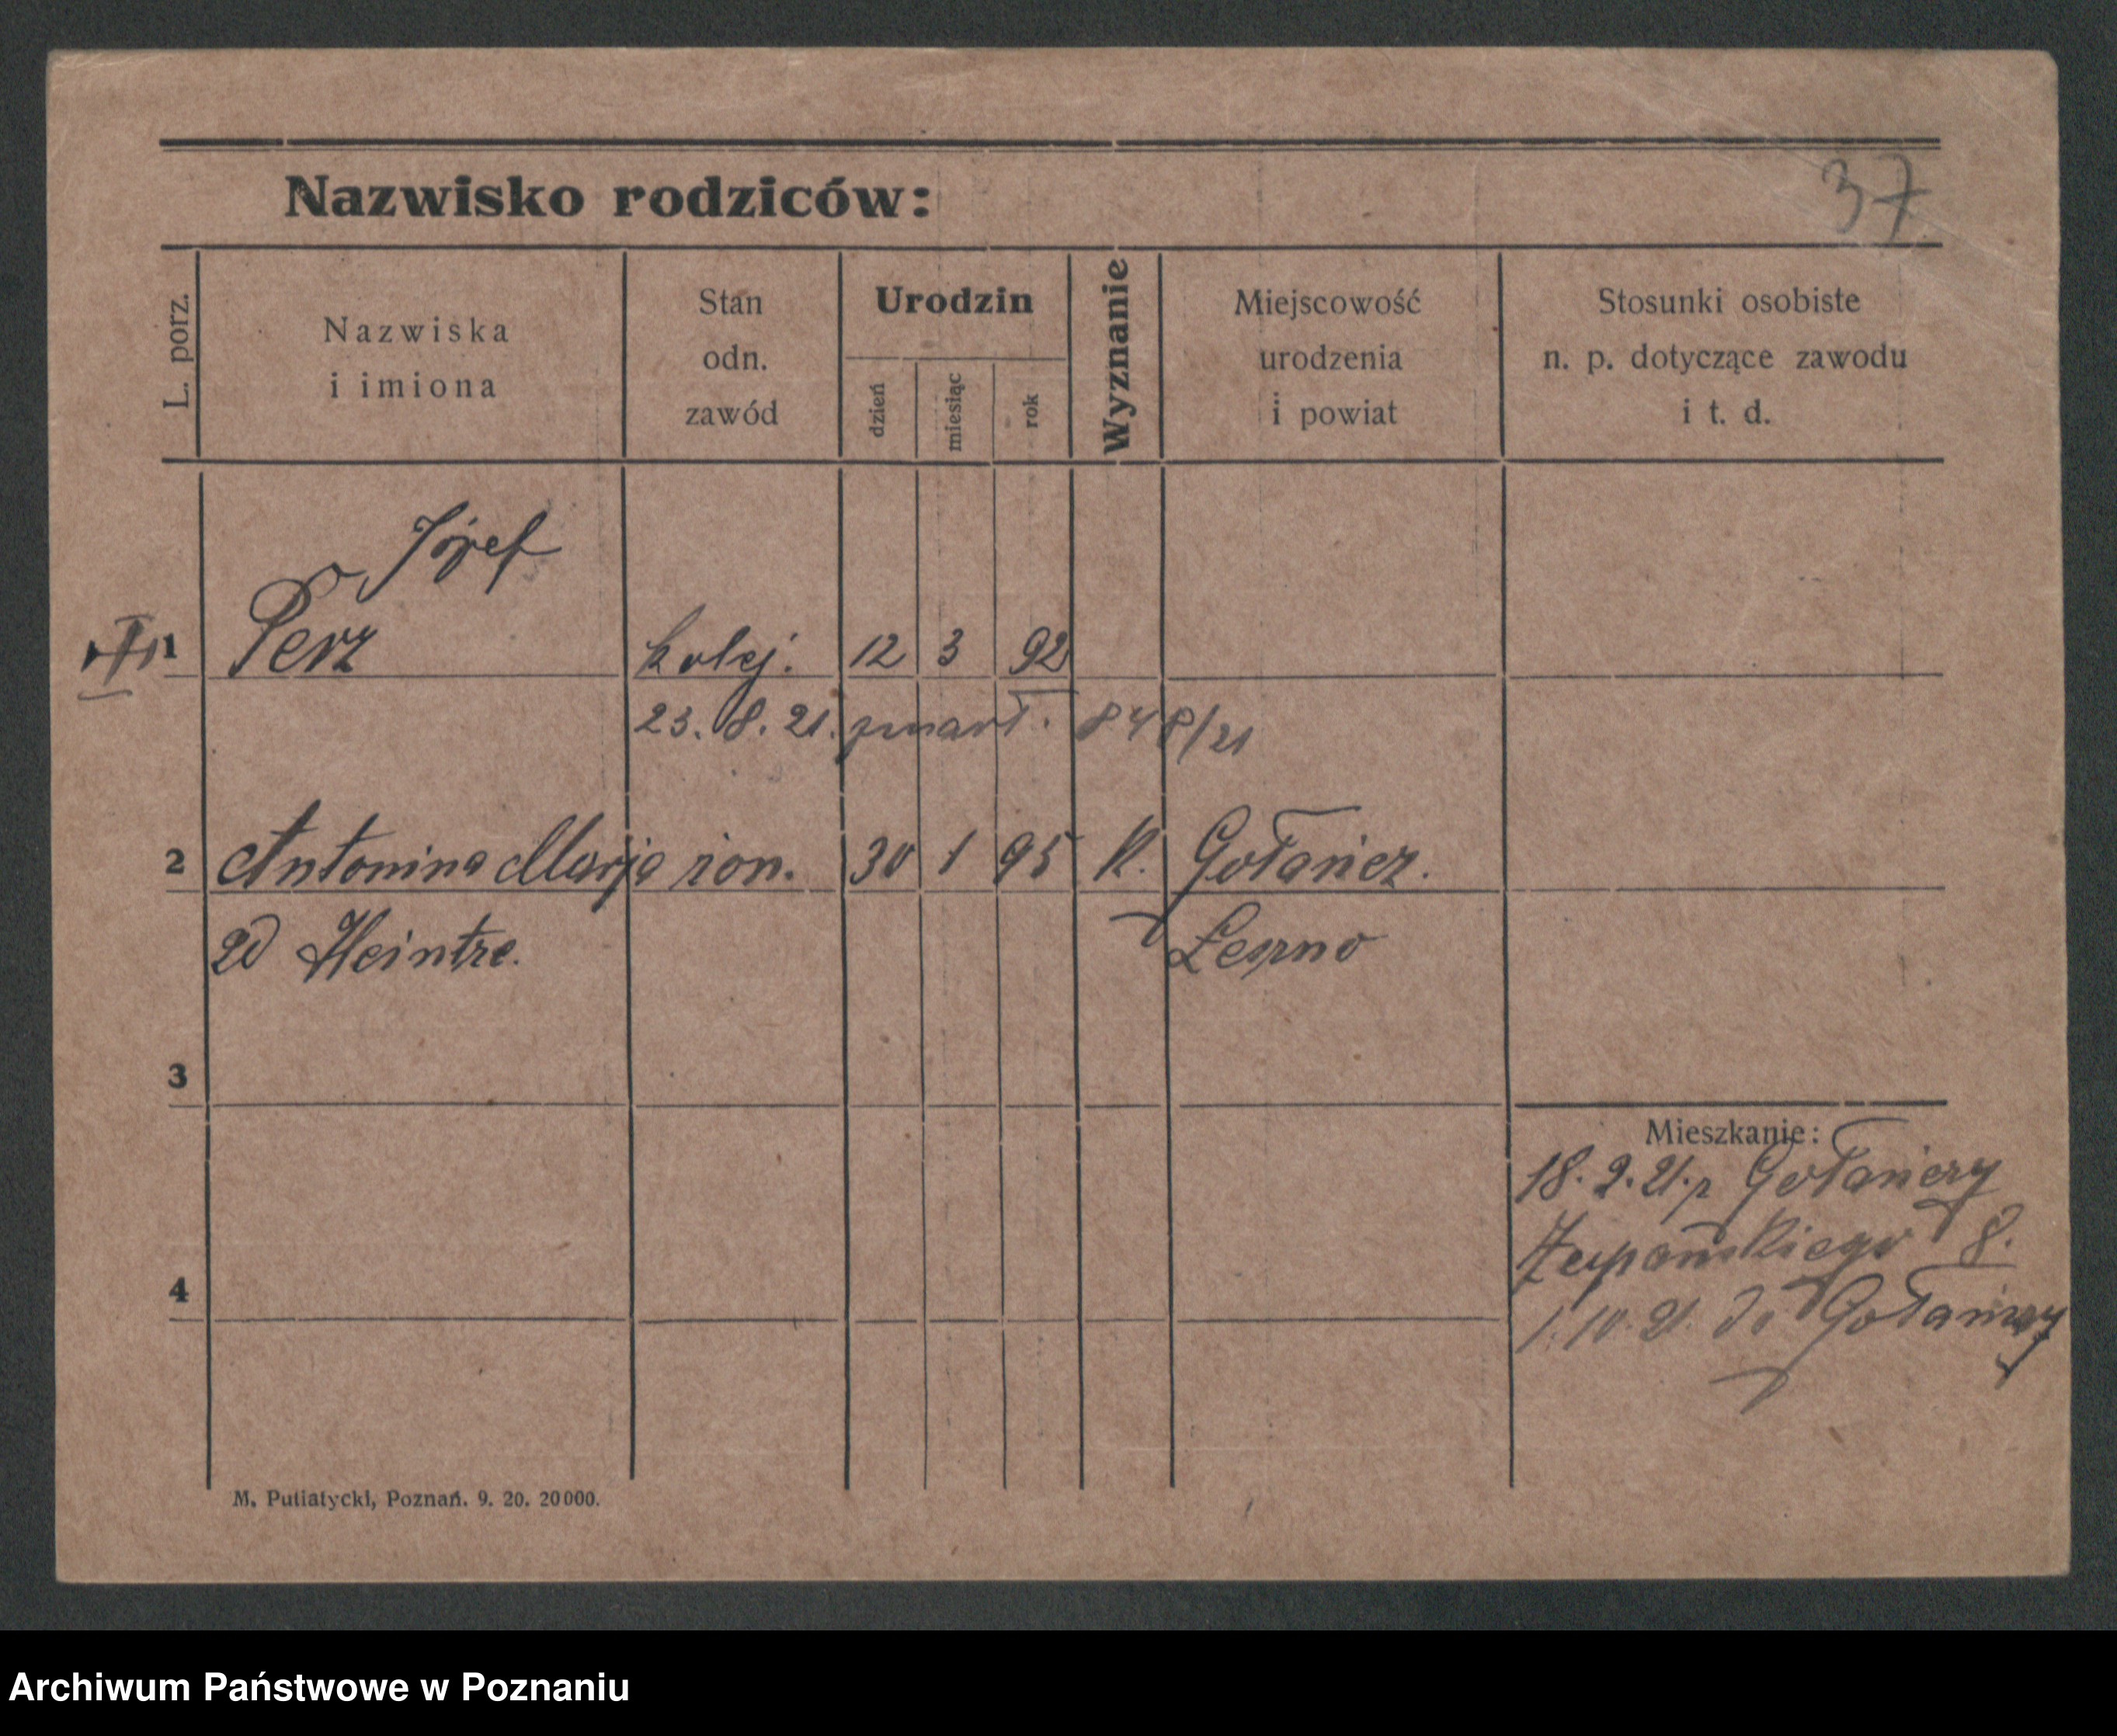 37
Nazwisko rodziców:
L. porz.
Nazwiska
i imiona
Stan
odn.
zawód
Urodzin
dzień
miesiąc
rok
Wyznanie
Miejscowość
urodzenia
i powiat
Stosunki osobiste
n. p. dotyczące zawodu
i t. d.
Józef
1 Perz kolej. 12 3 92
23. 8. 21. zmarł. 848/21
2 Antonina Marja żon. 30 1 95 k. Gołańcz.
zd Heintze. Leszno
3
Mieszkanie:
18. 2. 21. z Gołańczy
Żupańskiego 8.
4
1. 10. 21. do Gołańczy
M. Putiatycki, Poznań. 9. 20. 20000.
Archiwum Państwowe w Poznaniu